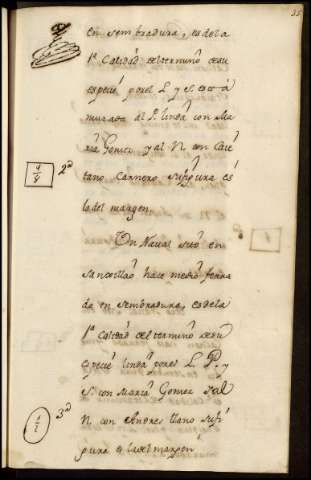 35
en sembradura, es de la
1ª Calidad del termino de su
especie por el L y S. esta
murada al P. linda con Ma
ria Gomez y al N. con Caie
tano Carnero su figura es
4/8 2ª
la del margen
Un Naval sito en
hace medio ferra
do en sembradura, es de la
1ª Calidad del termino de su
especie linda por el L. P. y
S. con Maria Gomez y al
N. con Andres llano su fi
1/2 3ª
gura es la del margen